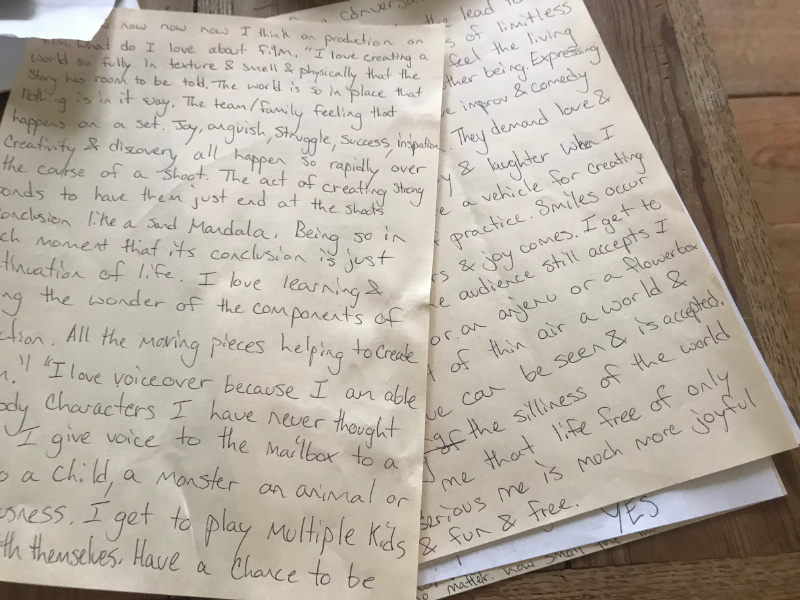 now now now I think on production on
film. What do I love about film. "I love creating a
world so fully in texture & smell & physically that the
Story has room to be told. The world is so in place that
Nothing is in it way. The team/family feeling that
happens on a set. Joy, anguish, Struggle, Success, inspiration,
Creativity & discovery all happen so rapidly over
the course of a shoot. The act of creating strong
onds to have them just end at the shoots
onclusion like a Sand Mandala. Being so in
ch moment that its conclusion is just
tinuation of life. I love learning &
ng the wonder of the components of
ction. All the moving pieces helping to create
n." "I love voiceover because I am able
ody Characters I have never thought
I give voice to the mailbox to a
o a child, a monster an animal or
osness. I get to play Multiple Kids
th themselves. Have a Chance to be
conversa
the lead to
s of limitless
feel the living
ther being. Expressing
e improv & comedy
They demand love &
y & laughter when I
e a vehicle for creating
practice. Smiles occur
rs & joy comes. I get to
e audience still accepts I
or an anjenu or a flowerbox
t of thin air a world &
ve can be seen & is accepted.
g of the silliness of the world
me that life free of only
serious me is much more joyful
& fun & free.
YES
matter. how small the